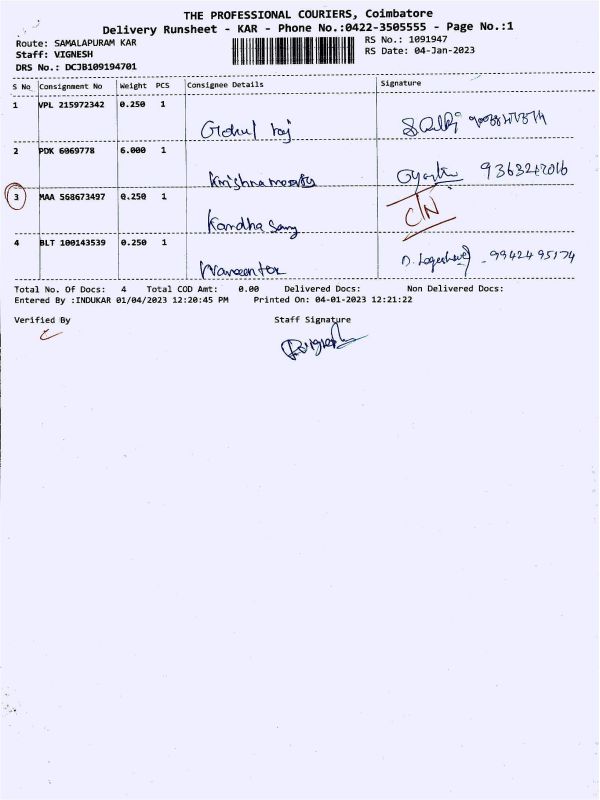 THE PROFESSIONAL COURIERS, Coimbatore
Delivery Runsheet - KAR - Phone No.:0422-3505555 - Page No.:1
Route: SAMALAPURAM KAR
Staff: VIGNESH
DRS No.: DCJB109194701
RS No.: 1091947
RS Date: 04-Jan-2023
S No Consignment No Weight PCS Consignee Details Signature
1 VPL 215972342 0.250 1
Gokul raj
2 PDK 6069778 6.000 1
Krishna moorthy
3 MAA 568673497 0.250 1 C/N
Kandha samy
4 BLT 100143539 0.250 1
D. Logeshwari - 99424 95174
Total No. Of Docs: 4 Total COD Amt: 0.00 Delivered Docs: Non Delivered Docs:
Entered By :INDUKAR 01/04/2023 12:20:45 PM Printed On: 04-01-2023 12:21:22
Verified By Staff Signature